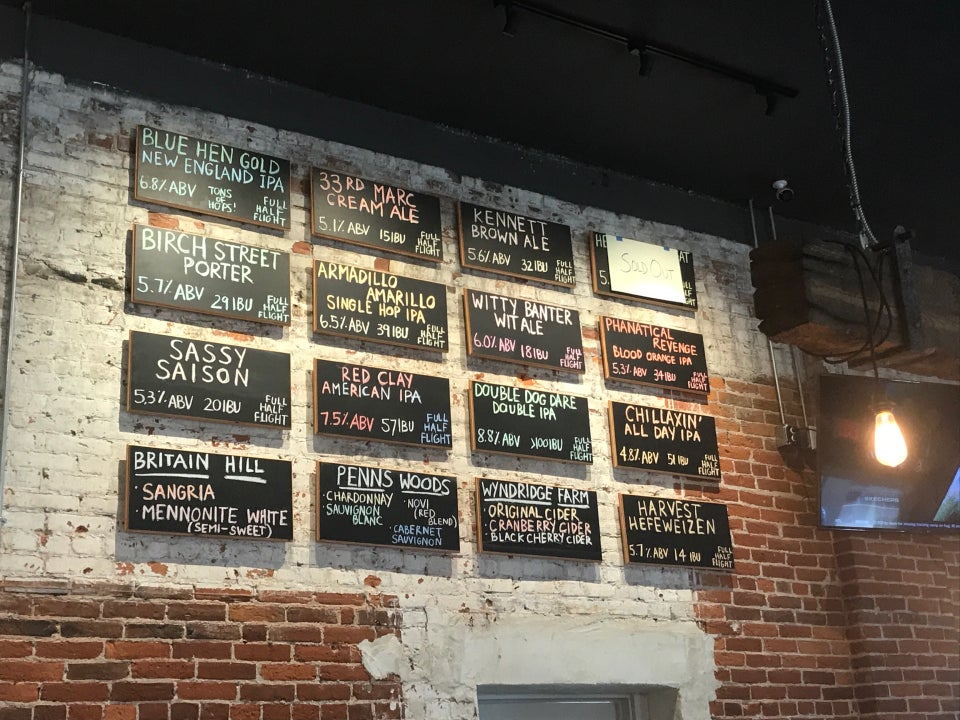 BLUE HEN GOLD
NEW ENGLAND IPA
6.8% ABV
TONS
OF
HOPS!
FULL
HALF
FLIGHT
33RD MARC
CREAM ALE
5.1% ABV 15 IBU
FULL
HALF
FLIGHT
KENNETT
BROWN ALE
5.6% ABV 32 IBU
FULL
HALF
FLIGHT
SOLD OUT
BIRCH STREET
PORTER
5.7% ABV 29 IBU
FULL
HALF
FLIGHT
ARMADILLO
AMARILLO
SINGLE HOP IPA
6.5% ABV 39 IBU
FULL
HALF
FLIGHT
WITTY BANTER
WIT ALE
6.0% ABV 18 IBU
FULL
HALF
FLIGHT
PHANATICAL
REVENGE
BLOOD ORANGE IPA
5.3% ABV 34 IBU
FULL
HALF
FLIGHT
SASSY
SAISON
5.3% ABV 20 IBU
FULL
HALF
FLIGHT
RED CLAY
AMERICAN IPA
7.5% ABV 57 IBU
FULL
HALF
FLIGHT
DOUBLE DOG DARE
DOUBLE IPA
8.8% ABV >100 IBU
FULL
HALF
FLIGHT
CHILLAXIN'
ALL DAY IPA
4.8% ABV 51 IBU
FULL
HALF
FLIGHT
BRITAIN HILL
· SANGRIA
· MENNONITE WHITE
(SEMI-SWEET)
PENNS WOODS
· CHARDONNAY
· SAUVIGNON
BLANC
· NOVI
(RED
BLEND)
· CABERNET
SAUVIGNON
WYNDRIDGE FARM
· ORIGINAL CIDER
· CRANBERRY CIDER
· BLACK CHERRY CIDER
HARVEST
HEFEWEIZEN
5.7% ABV 14 IBU
FULL
HALF
FLIGHT
SKECHERS